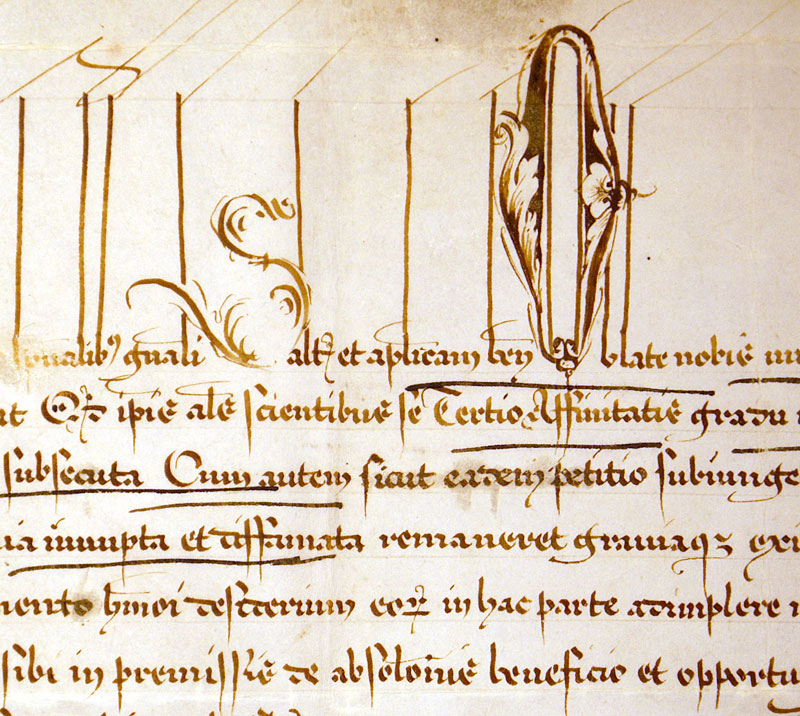 gnali Salt et aplicam ben Oblate nobis
Qd ipse als scientibus se Tertio Affinitatis gradu
subsecuta Cum autem sicut eadem petitio subiunge
innupta et diffamata remaneret graviaqz
mento hmoi desiderium eor in hac parte adimplere
sibi in premissis de absolonis beneficio et opportu